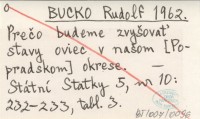 BUCKO Rudolf 1962.
Prečo budeme zvyšovať
stavy oviec v našom [Po-
pradskom] okrese. —
Štátní Statky 5, nr 10:
232-233, tabl. 3.